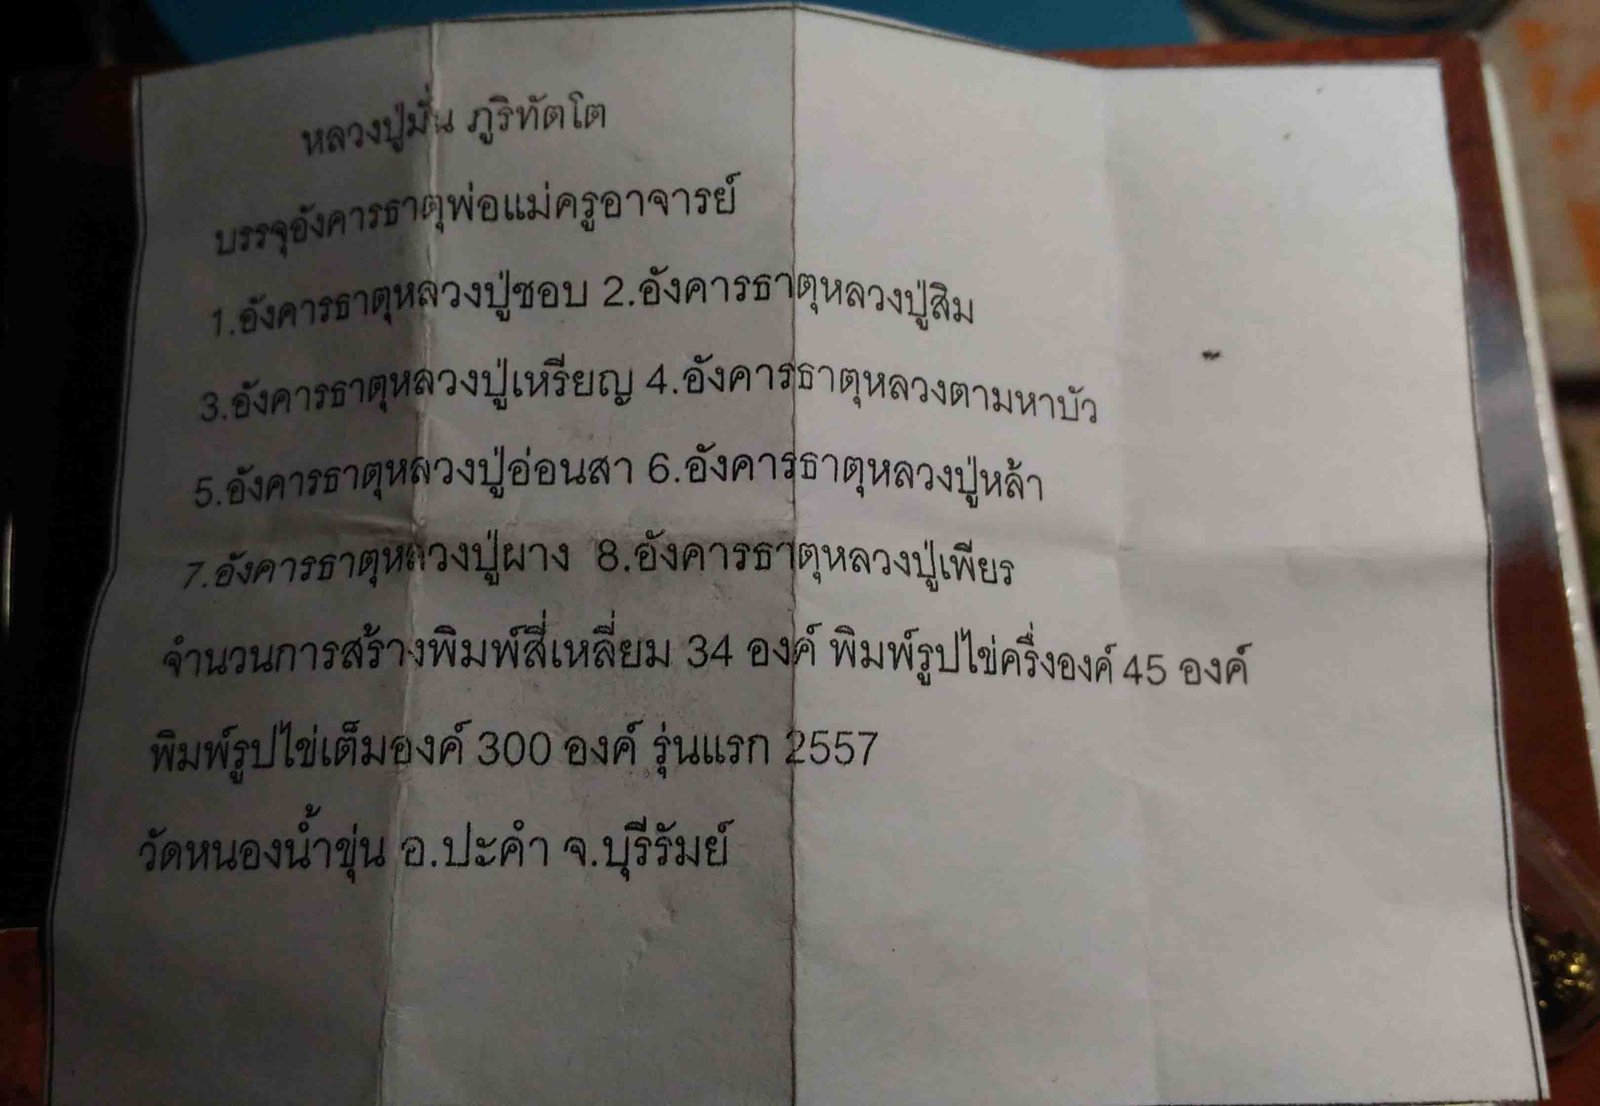 หลวงปู่มั่น ภูริทัตโต
บรรจุอังคารธาตุพ่อแม่ครูอาจารย์
1.อังคารธาตุหลวงปู่ชอบ 2.อังคารธาตุหลวงปู่สิม
3.อังคารธาตุหลวงปู่เหรียญ 4.อังคารธาตุหลวงตามหาบัว
5.อังคารธาตุหลวงปู่อ่อนสา 6.อังคารธาตุหลวงปู่หล้า
7.อังคารธาตุหลวงปู่ผาง 8.อังคารธาตุหลวงปู่เพียร
จำนวนการสร้างพิมพ์สี่เหลี่ยม 34 องค์ พิมพ์รูปไข่ครึ่งองค์ 45 องค์
พิมพ์รูปไข่เต็มองค์ 300 องค์ รุ่นแรก 2557
วัดหนองน้ำขุ่น อ.ปะคำ จ.บุรีรัมย์